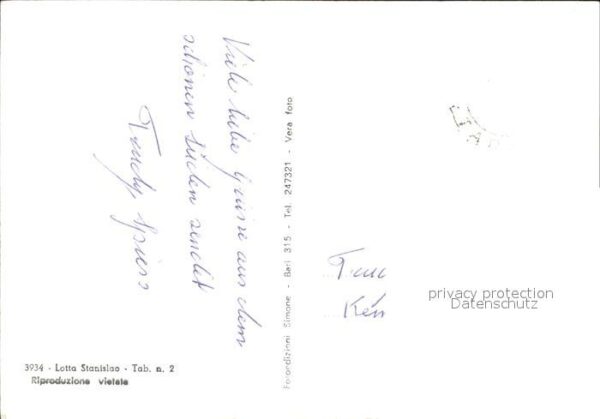 Viele liebe Grüsse aus dem
schönen Süden sendet
Trudy Spiess
Fotoedizioni Simone - Bari 315 - Tel. 247321 - Vera foto
privacy protection
Datenschutz
3934 - Lotta Stanislao - Tab. n. 2
Riproduzione vietata